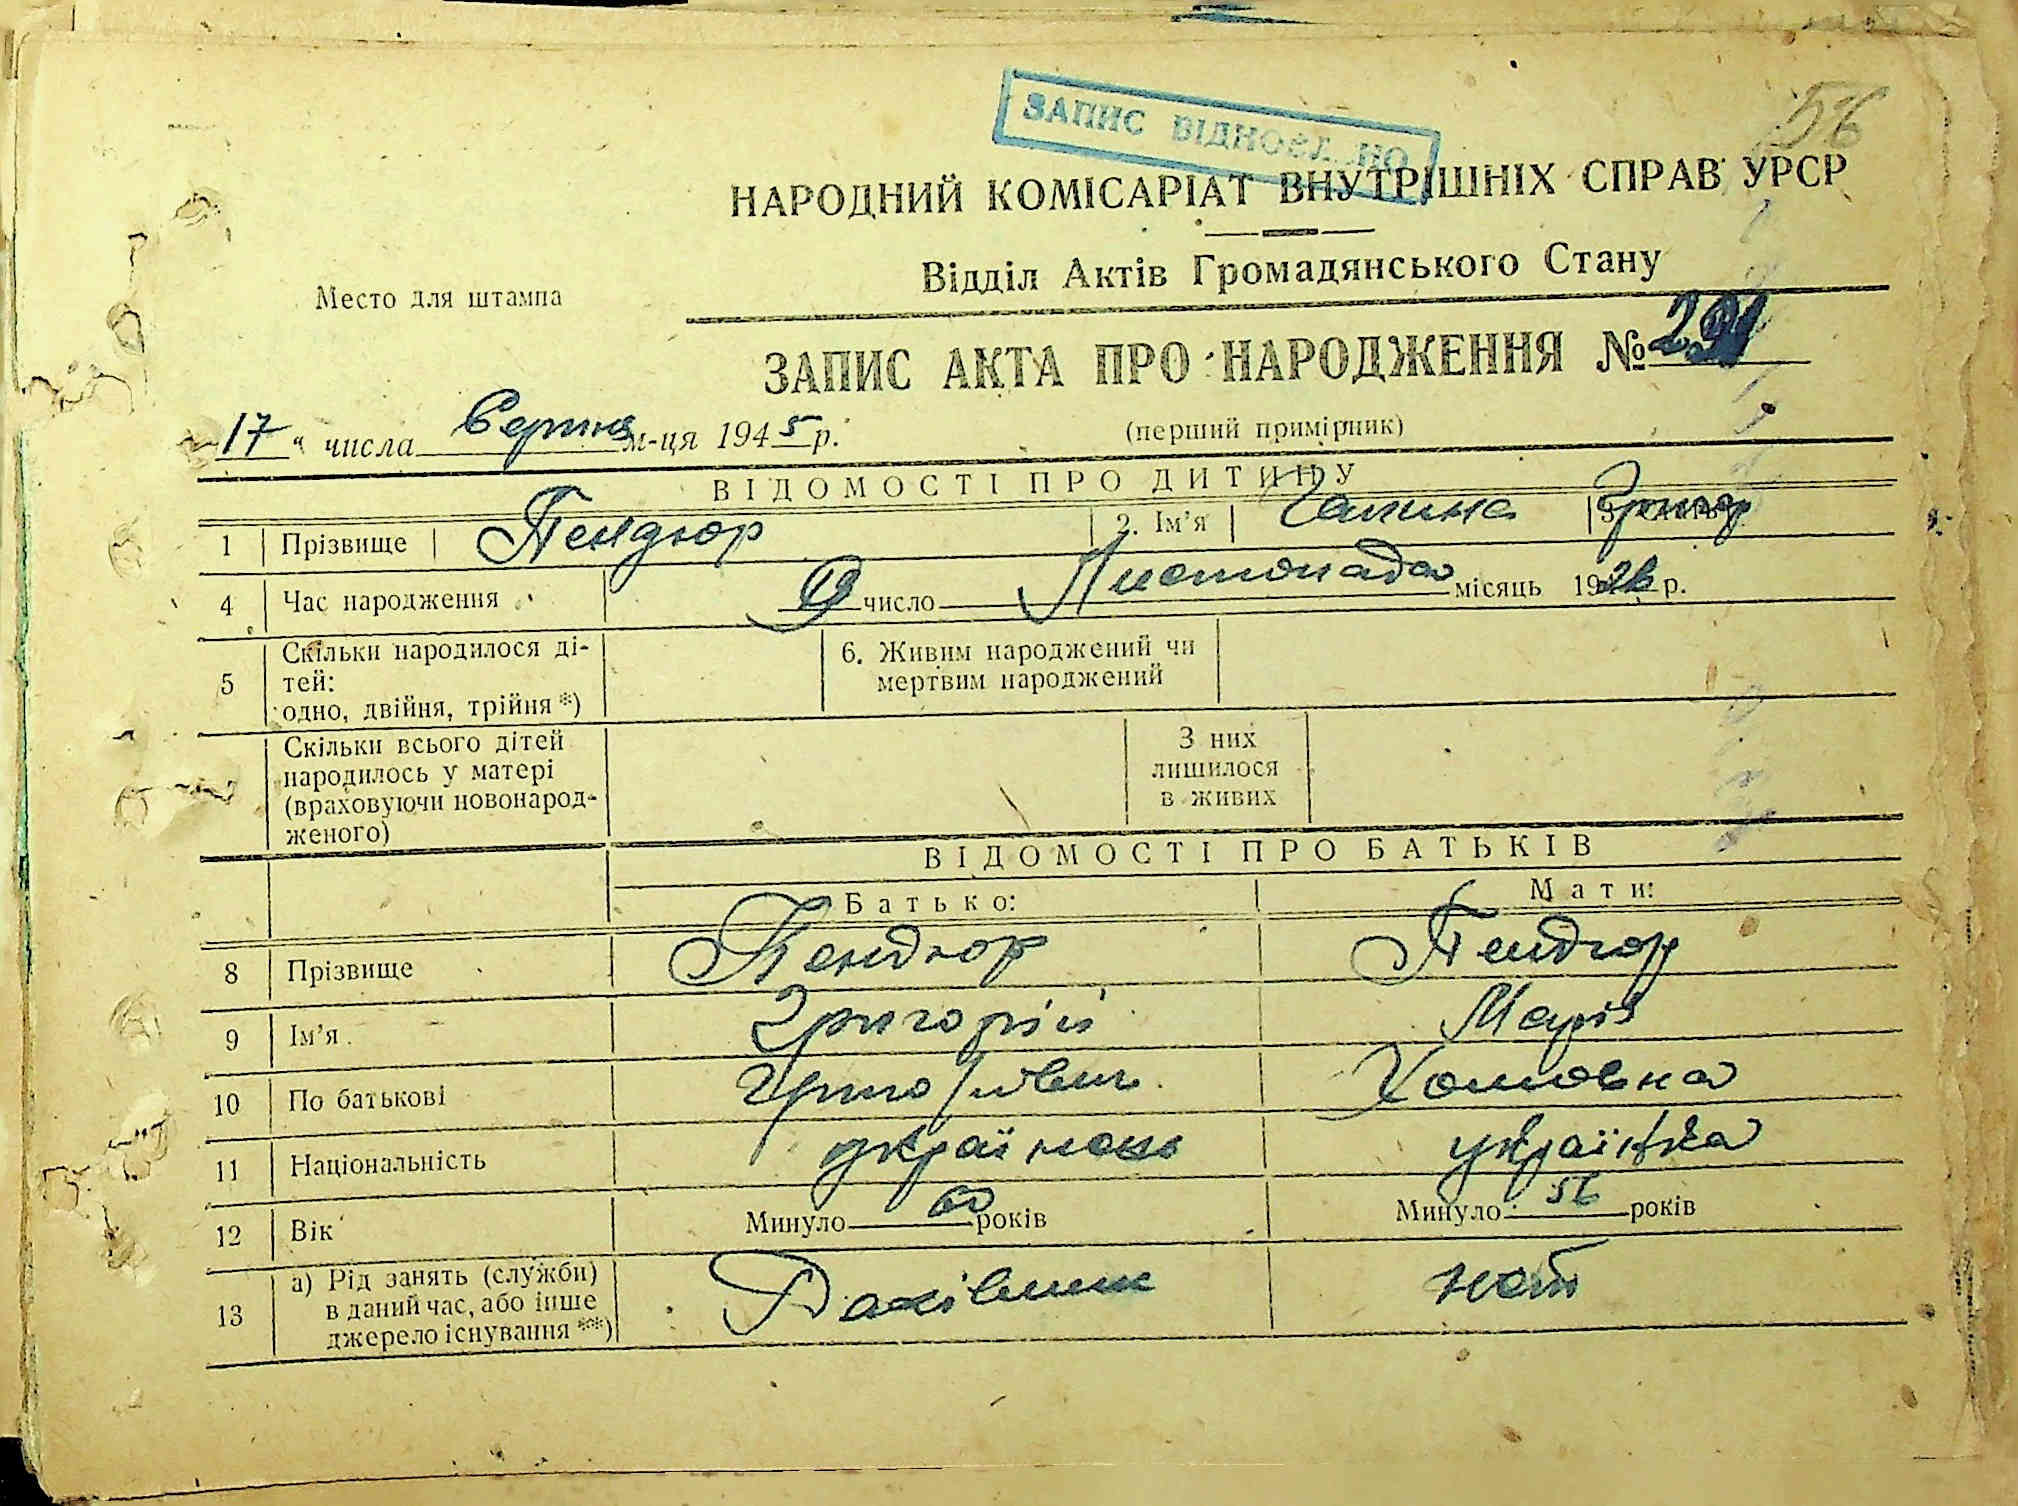 56
ЗАПИС ВІДНОВЛЕНО
НАРОДНИЙ КОМІСАРІАТ ВНУТРІШНІХ СПРАВ УРСР
Відділ Актів Громадянського Стану
Место для штампа
ЗАПИС АКТА ПРО НАРОДЖЕННЯ №
17 " числа Серпня м-ця 1945 р.
(перший примірник)
ВІДОМОСТІ ПРО ДИТИНУ
1 Прізвище Пендюр 2. Ім'я Галина Григор
4 Час народження 19 число Листопада місяць 1926 р.
5 Скільки народилося ді-
тей:
одно, двійня, трійня *)
6. Живим народжений чи
мертвим народжений
Скільки всього дітей
народилось у матері
(враховуючи новонарод-
женого)
З них
лишилося
в живих
ВІДОМОСТІ ПРО БАТЬКІВ
Батько: Мати:
8 Прізвище Пендюр Пендюр
9 Ім'я Григорій Марія
10 По батькові Григорівич Хомовна
11 Національність українець українка
12 Вік Минуло 60 років Минуло 56 років
13 а) Рід занять (служби)
в даний час, або інше
джерело існування **)
Рахівник нет